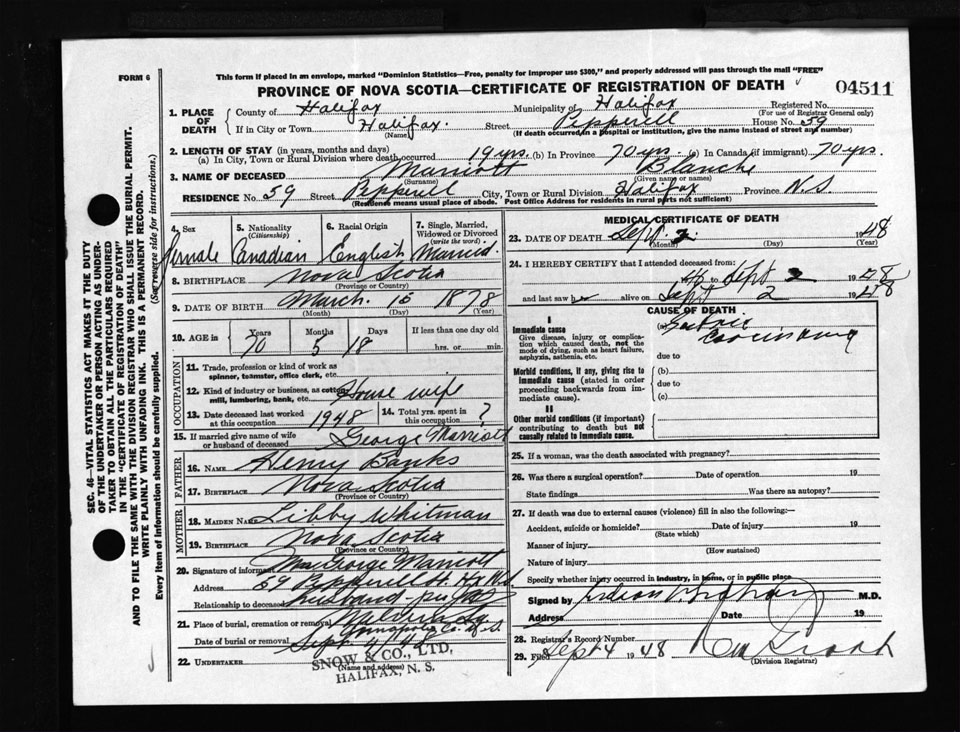 This form if placed in an envelope, marked "Dominion Statistics—Free, penalty for improper use $300," and properly addressed will pass through the mail "FREE"
FORM 6
PROVINCE OF NOVA SCOTIA—CERTIFICATE OF REGISTRATION OF DEATH
04511
1. PLACE OF DEATH
County of Halifax Municipality of Halifax Registered No.
(For use of Registrar General only)
If in City or Town Halifax. Street Pepperell House No. 59
(Name) (If death occurred in a hospital or institution, give the name instead of street and number)
2. LENGTH OF STAY (in years, months and days)
(a) In City, Town or Rural Division where death occurred 19 yrs. (b) In Province 70 yrs. (c) In Canada (if immigrant) 70 yrs.
3. NAME OF DECEASED Marriott Blanche
(Surname) (Given name or names)
RESIDENCE No. 59 Street Pepperell City, Town or Rural Division Halifax Province N.S.
(Residence means usual place of abode. Post Office Address for residents in rural parts not sufficient)
4. Sex Female
5. Nationality (Citizenship) Canadian
6. Racial Origin English
7. Single, Married, Widowed or Divorced (write the word) Married.
8. BIRTHPLACE Nova Scotia
(Province or Country)
9. DATE OF BIRTH March 15 1878
(Month) (Day) (Year)
10. AGE in Years 70 Months 5 Days 18 If less than one day old
hrs. or min.
OCCUPATION
11. Trade, profession or kind of work as spinner, teamster, office clerk, etc.
12. Kind of industry or business, as cotton mill, lumbering, bank, etc. House wife
13. Date deceased last worked at this occupation 1948
14. Total yrs. spent in this occupation ?
15. If married give name of wife or husband of deceased George Marriott
FATHER
16. NAME Henry Banks
17. BIRTHPLACE Nova Scotia
(Province or Country)
MOTHER
18. MAIDEN NAME Libby Whitman
19. BIRTHPLACE Nova Scotia
(Province or Country)
20. Signature of informant George Marriott
Address 59 Pepperell St. Hx N.S.
Relationship to deceased husband
21. Place of burial, cremation or removal Annapolis Co. N.S.
Date of burial or removal Sept. 4
22. UNDERTAKER SNOW & CO., LTD,
(Name and address)
HALIFAX, N. S.
MEDICAL CERTIFICATE OF DEATH
23. DATE OF DEATH Sept. 2 1948
(Month) (Day) (Year)
24. I HEREBY CERTIFY that I attended deceased from:
to Sept 2 1948
and last saw her alive on Sept 2 1948
CAUSE OF DEATH
I
Immediate cause
Give disease, injury or complication which caused death, not the mode of dying, such as heart failure, asphyxia, asthenia, etc.
(a)
due to
Morbid conditions, if any, giving rise to immediate cause (stated in order proceeding backwards from immediate cause).
(b)
due to
(c)
II
Other morbid conditions (if important) contributing to death but not causally related to immediate cause.
25. If a woman, was the death associated with pregnancy?
26. Was there a surgical operation? Date of operation 19
State findings Was there an autopsy?
27. If death was due to external causes (violence) fill in also the following:—
Accident, suicide or homicide? Date of injury 19
(State which)
Manner of injury
(How sustained)
Nature of injury
Specify whether injury occurred in industry, in home, or in public place
Signed by M.D.
Address Date 19
28. Registrar's Record Number
29. Filed Sept 4 1948
(Division Registrar)
SEC. 46—VITAL STATISTICS ACT MAKES IT THE DUTY
OF THE UNDERTAKER OR PERSON ACTING AS UNDER-
TAKER TO OBTAIN ALL THE PARTICULARS REQUIRED
IN THE "CERTIFICATE OF REGISTRATION OF DEATH"
AND TO FILE THE SAME WITH THE DIVISION REGISTRAR WHO SHALL ISSUE THE BURIAL PERMIT.
WRITE PLAINLY WITH UNFADING INK. THIS IS A PERMANENT RECORD.
Every item of Information should be carefully supplied.
(See reverse side for instructions.)